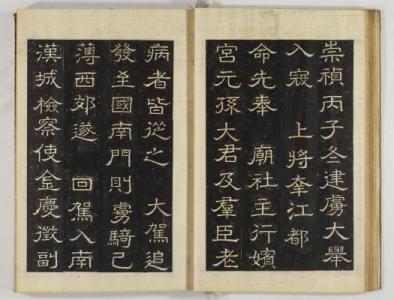 崇禎丙子冬建虜大舉
入寇 上將幸江都
命先奉 廟社主行嬪
宮元孫大君及羣臣老
病者皆從之 大駕追
發至國南門則虜騎已
薄西郊遂 回駕入南
漢城檢察使金慶徵副